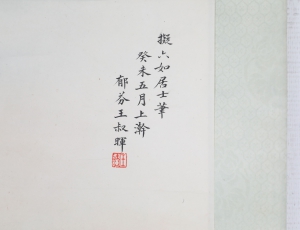 擬六如居士筆
癸未五月上澣
郁芬王叔暉